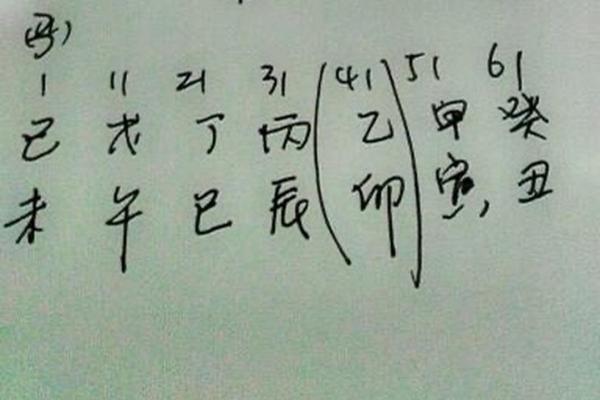 1 11 21 31 (41) 51 61
己 戊 丁 丙 乙 甲 癸
未 午 巳 辰 卯 寅, 丑